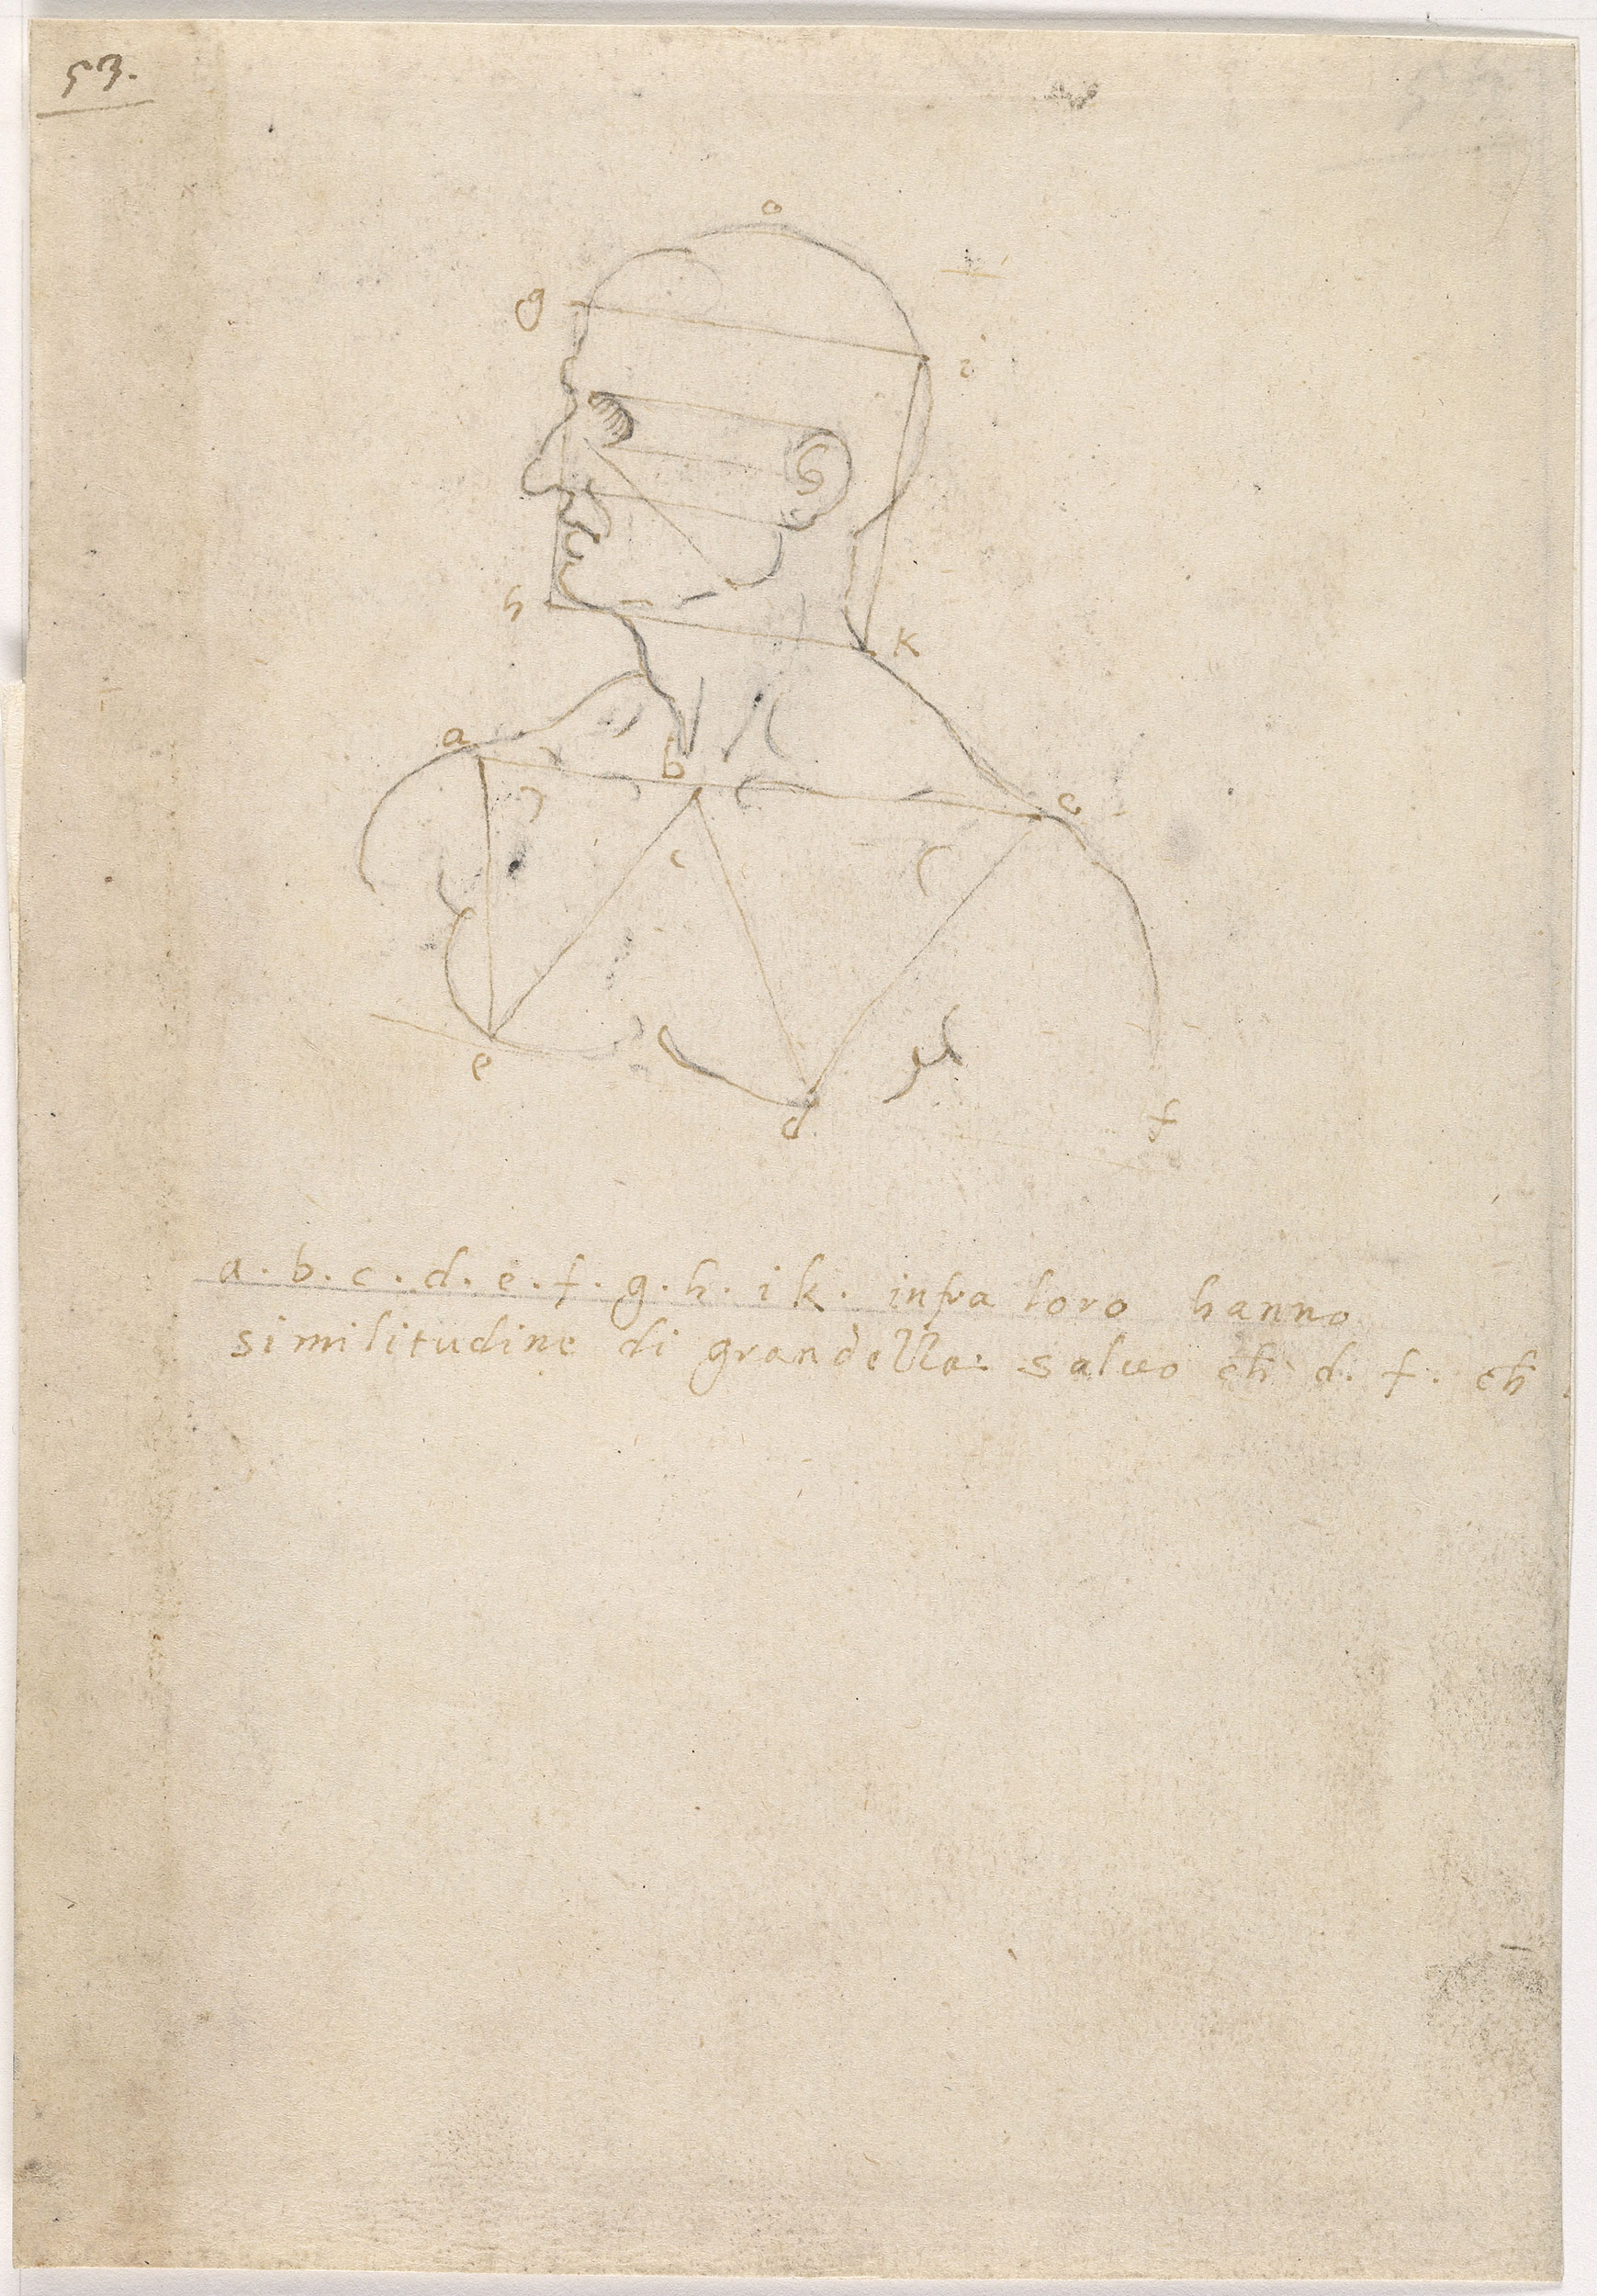 53.
o
g
i
h
k
a
b
c
e
d
f
a. b. c. d. e. f. g. h. i k. infra loro hanno
similitudine di grandezza: saluo ch̄ d. f. ch̄